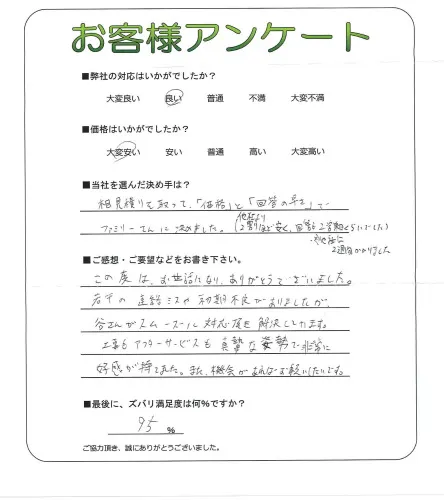 お客様アンケート
■弊社の対応はいかがでしたか？
大変良い 良い 普通 不満 大変不満
■価格はいかがでしたか？
大変安い 安い 普通 高い 大変高い
■当社を選んだ決め手は？
相見積りを取って、「価格」と「回答の早さ」で
ファミリーてんに決めました。(他社より2割ほど安く、回答も
他社は2週間かかりました
■ご感想・ご要望などをお書き下さい。
この度は、お世話になり、ありがとうございました。
若干の連絡ミスや初期不良がありましたが、
谷さんがスムーズに対応頂き解決してます。
工事もアフターサービスも真摯な姿勢で非常に
好感が持てました。また、機会があればお願いしたいです。
■最後に、ズバリ満足度は何%ですか？
95 %
ご協力頂き、誠にありがとうございました。